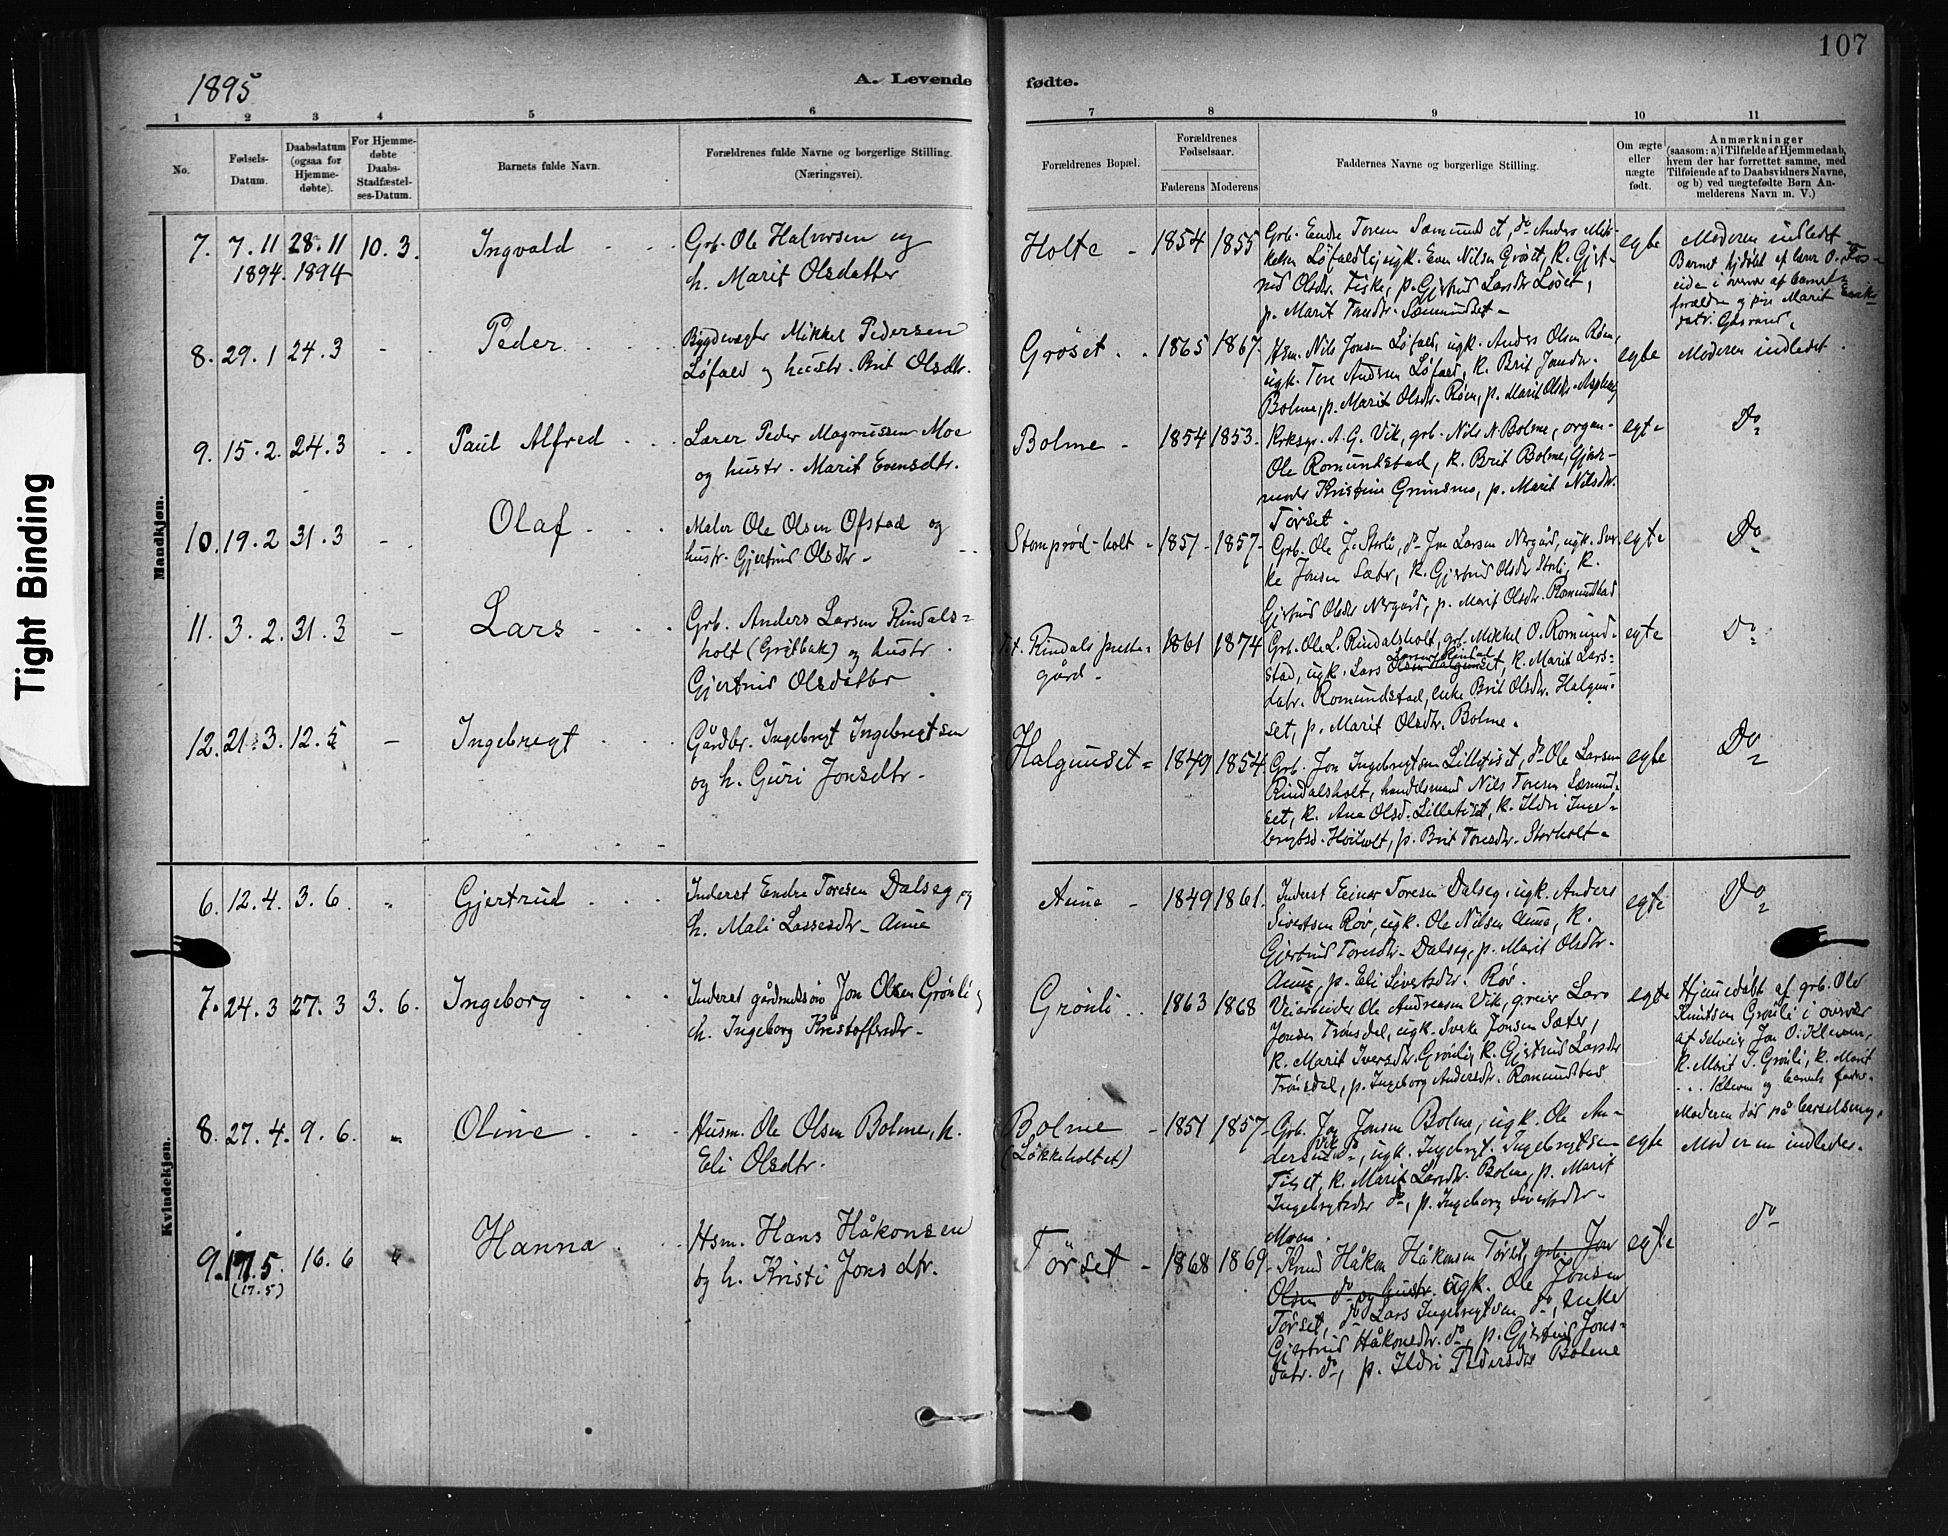 107
1895
A. Levende
fødte.
1 2 3 4 5 6 7 8 9 10 11
No.
Fødsels-
Datum.
Daabsdatum
(ogsaa for
Hjemme-
døbte).
For Hjemme-
døbte
Daabs-
Stadfæstel-
ses-Datum.
Barnets fulde Navn.
Forældrenes fulde Navne og borgerlige Stilling.
(Næringsvei).
Forældrenes Bopæl.
Forældrenes
Fødselsaar.
Faderens Moderens
Faddernes Navne og borgerlige Stilling.
Om ægte
eller
uægte
født.
Anmærkninger
(saasom: a) i Tilfælde af Hjemmedaab,
hvem der har forrettet samme, med
Tilføiende af to Daabsvidners Navne,
og b) ved uægtefødte Børn An-
melderens Navn m. V.)
Mandkjøn.
7. 7.11 28.11 10.3. Ingvald
1894. 1894
Grb. Ole Halvorsen og
h. Marit Olsdatter
Holte 1854 1855
Grb. Endre Toresen Sæmundset, do Anders Mik-
kelsen Løfaldli, ugk. Even Nilsen Grøset, k. Gjert-
rud Olsdtr. Fiske, p. Gjertrud Larsdtr Løset,
p. Marit Toresdtr. Sæmundset
egte
Moderen indledet
Barnet hjdøbt af lærer O.
8. 29.1 24.3 Peder
Bygdevægter Mikkel Pedersen
Løfald og hustr. Brit Olsdtr.
Grøset 1865 1867
Hsm. Nils Jonsen Løfald, ugk. Anders Olsen Røen,
ugk. Tore Andersen Løfald, k. Brit Jonsdtr.
Bolme, p. Marit Olsdtr. Røen, p. Marit Olsdtr.
egte
Moderen indledet.
9. 15.2. 24.3 Paul Alfred
Lærer Peder Magnussen Moe
og hustr. Marit Evensdtr.
Bolme 1854 1853
Kirksgr. A. G. Vik, grb. Nils N. Bolme, organ-
Ole Romundstad, k. Brit Bolme, Gjord-
moder Kristine Grimsmo, p. Marit Nilsdtr.
Tørset.
egte
Do
10. 19.2 31.3 Olaf
Maler Ole Olsen Ofstad og
hustr. Gjertrud Olsdtr.
Stomprød-holt 1851 1857
Grb. Ole J. Storli, do Jon Larsen Nergård, ugk. Sver-
ke Jonsen Sæter, k. Gjertrud Olsdtr Storli, k.
Gjertrud Olsdtr Nergård, p. Marit Olsdtr. Romundstad
egte
Do
11. 3.2. 31.3 Lars
Grb. Anders Larsen Rindals-
holt (Grytbak) og hustr.
Gjertrud Olsdatter
Rindals preste-
gård.
1861 1874
Grb. Ole L. Rindalsholt, grb. Mikkel O. Romund-
stad, ugk. Lars Olsen Halgunset, k. Marit Lars-
datr. Romundstad, enke Brit Olsdtr. Halgun-
set, p. Marit Olsdtr. Bolme.
egte
Do
12. 21.3. 12.5 Ingebregt
Gårdbr. Ingebregt Ingebregtsen
og h. Guri Jonsdtr.
Halgunset 1849 1854
Grb. Jon Ingebregtsen Lilletiset, do Ole Larsen
Rindalsholt, handelsmand Nils Toresen Sæmund-
set, k. Ane Olsd. Lilletiset, k. Ildri Inge-
bregtsd. Hoilholt, p. Brit Toresdtr. Storholt
egte
Do
Kvindekjøn.
6. 12.4. 3.6. Gjertrud
Inderst Endre Toresen Dalseg og
h. Mali Lassesdtr. Aune
Aune 1849 1861.
Inderst Einar Toresen Dalseg, ugk. Anders
Sivertsen Røv, ugk. Ole Nilsen Aune, k.
Gjertrud Toresdtr. Dalseg, p. Marit Olsdtr.
Aune, p. Eli Sivertsdtr. Røv.
egte
Do
7. 24.3 27.3 3.6. Ingeborg
Inderst gårdmdssøn Jon Olsen Grønli og
h. Ingeborg Kristoffersdtr.
Grønli 1863 1868
Veiarbeider Ole Andreasen Vik, greier Lars
Jonsen Trønsdal, ugk. Sverke Jonsen Sæter,
k. Marit Iversdtr. Grønli, k. Gjertrud Larsdtr
Trønsdal, p. Ingeborg Andersdtr. Romundstad
egte
Hjemmedøbt af grb. Ole
Knudsen Grønli i overvær
af selveier Jon O. Kleven,
k. Marit J. Grønli, k. Marit
Kleven og barnets fader.
Moderen død på barselseng.
8. 27.4. 9.6. Oline
Husm. Ole Olsen Bolme, h.
Eli Olsdtr.
Bolme
(Løkkeholtet)
1851 1857
Grb. Jon Jonsen Bolme, ugk. Ole An-
dersen do, ugk. Ingebregt Ingebregtsen
Tiset, k. Marit Larsdtr. Bolme, p. Marit
Ingebregtsdtr do, p. Ingeborg Sivertsdtr.
Moen.
egte
Moderen indledet.
9. 17.5. 16.6 Hanna
(17.5)
Hsm. Hans Håkonsen
og h. Kristi Jonsdtr.
Tørset 1868 1869
Knud Håkon Håkonsen Tørset, grb. Jon
Olsen do og hustr. ugk. Ole Jonsen
Tørset, do Lars Ingebregtsen do, enke
Gjertrud Håkonsdtr. do, p. Gjertrud Jons-
datr. do, p. Ildri Pedersdtr Bolme
egte
do
Tight Binding